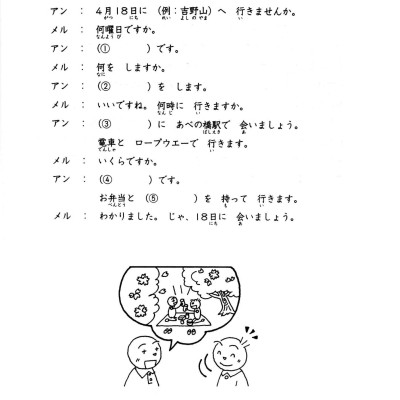 アン ： ４月１８日に （例：吉野山）へ 行きませんか。
がつ にち れい よしのやま い
メル ： 何曜日ですか。
なんようび
アン ： （① ）です。
メル ： 何を しますか。
なに
アン ： （② ）を します。
メル ： いいですね。何時に 行きますか。
なんじ い
アン ： （③ ）に あべの橋駅で 会いましょう。
ばしえき あ
電車と ロープウエーで 行きます。
でんしゃ い
メル ： いくらですか。
アン ： （④ ）です。
お弁当と （⑤ ）を 持って 行きます。
べんとう も い
メル ： わかりました。じゃ、１８日に 会いましょう。
にち あ